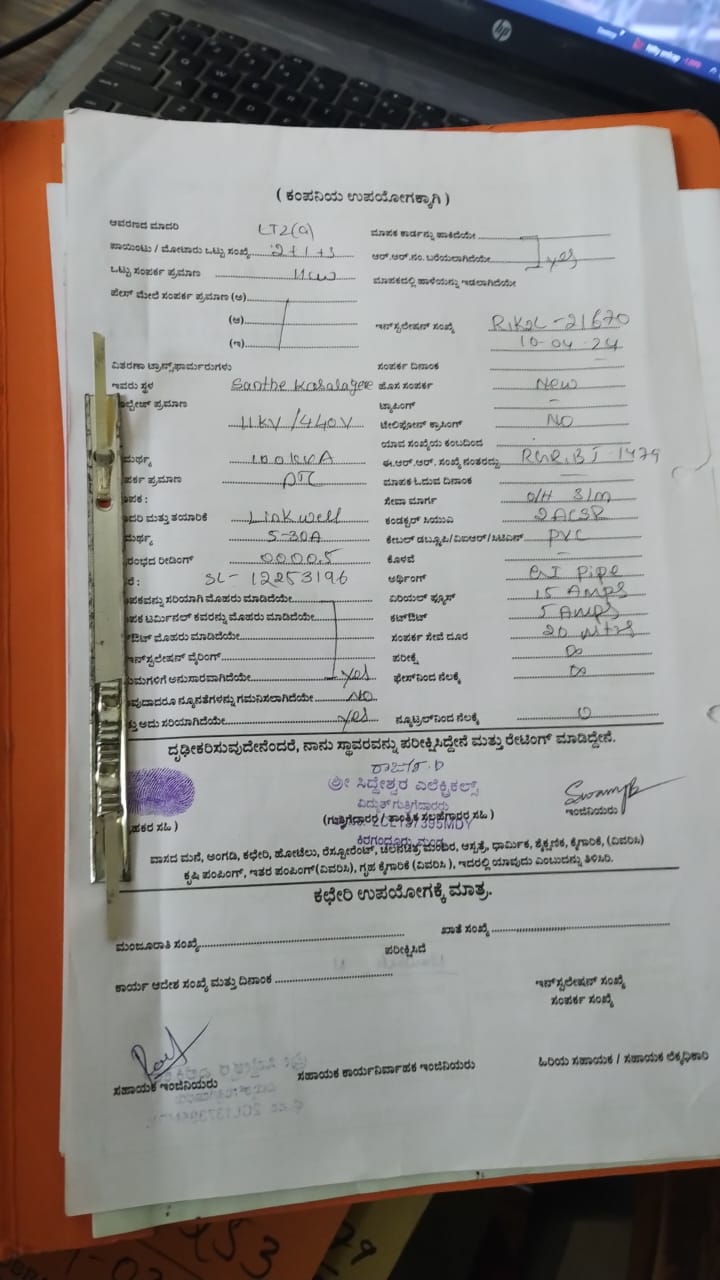 ( ಕಂಪನಿಯ ಉಪಯೋಗಕ್ಕಾಗಿ )
ಆವರಣದ ಮಾದರಿ LT2(a) ಮಾಪಕ ಕಾರ್ಡನ್ನು ಹಾಕಿದೆಯೇ
ಪಾಯಿಂಟು / ಮೋಟಾರು ಒಟ್ಟು ಸಂಖ್ಯೆ 2+1+3 ಆರ್.ಆರ್.ನಂ. ಬರೆಯಲಾಗಿದೆಯೇ yes
ಒಟ್ಟು ಸಂಪರ್ಕ ಪ್ರಮಾಣ 1kw ಮಾಪಕದಲ್ಲಿ ಹಾಳೆಯನ್ನು ಇಡಲಾಗಿದೆಯೇ
ಫೇಸ್ ಮೇಲೆ ಸಂಪರ್ಕ ಪ್ರಮಾಣ (ಅ)
(ಆ) ಇನ್‌ಸ್ಟಲೇಷನ್ ಸಂಖ್ಯೆ -21670
(ಇ) 10-04-24
ವಿತರಣಾ ಟ್ರಾನ್ಸ್‌ಫಾರ್ಮರುಗಳು ಸಂಪರ್ಕ ದಿನಾಂಕ -
ಇವರು ಸ್ಥಳ Santhe Kasalagere ಹೊಸ ಸಂಪರ್ಕ New
ಪ್ರಮಾಣ ಟ್ಯಾಪಿಂಗ್ -
11KV/440V ಟೆಲಿಫೋನ್ ಕ್ರಾಸಿಂಗ್ NO
ಯಾವ ಸಂಖ್ಯೆಯ ಕಂಬದಿಂದ -
ಮರ್ಥ್ಯ 100KVA ಈ.ಆರ್.ಆರ್. ಸಂಖ್ಯೆ ನಂತರದ್ದು
ಪರ್ಕ ಪ್ರಮಾಣ ಮಾಪಕ ಓದುವ ದಿನಾಂಕ -
ಪಕ : ಸೇವಾ ಮಾರ್ಗ O/H S/m
ದರಿ ಮತ್ತು ತಯಾರಿಕೆ Linkwell ಕಂಡಕ್ಟರ್ ಸಿಯುಎ 2ACSR
ಮರ್ಥ್ಯ 5-30A ಕೇಬಲ್ PVC
ರಂಭದ ರೀಡಿಂಗ್ 0000.5 ಕೊಳವೆ -
ರೆ : SL-12253196 ಅರ್ಥಿಂಗ್ GI Pipe
ಪಕವನ್ನು ಸರಿಯಾಗಿ ಮೊಹರು ಮಾಡಿದೆಯೇ ಏರಿಯಲ್ ಫ್ಯೂಸ್ 15 Amps
ಪಕ ಟರ್ಮಿನಲ್ ಕವರನ್ನು ಮೊಹರು ಮಾಡಿದೆಯೇ ಕಟ್‌ಔಟ್ 5 Amps
ಟ್‌ಔಟ್ ಮೊಹರು ಮಾಡಿದೆಯೇ ಸಂಪರ್ಕ ಸೇವೆ ದೂರ 20 Mtrs
ಇನ್‌ಸ್ಟಲೇಷನ್ ವೈರಿಂಗ್ ಪರೀಕ್ಷೆ ∞
ಯಮಗಳಿಗೆ ಅನುಸಾರವಾಗಿದೆಯೇ yes ಫೇಸ್‌ನಿಂದ ನೆಲಕ್ಕೆ ∞
ವುದಾದರೂ ನ್ಯೂನತೆಗಳನ್ನು ಗಮನಿಸಲಾಗಿದೆಯೇ NO
ತ್ತು ಅದು ಸರಿಯಾಗಿದೆಯೇ yes ನ್ಯೂಟ್ರಲ್‌ನಿಂದ ನೆಲಕ್ಕೆ 0
ದೃಢೀಕರಿಸುವುದೇನೆಂದರೆ, ನಾನು ಸ್ಥಾವರವನ್ನು ಪರೀಕ್ಷಿಸಿದ್ದೇನೆ ಮತ್ತು ರೇಟಿಂಗ್ ಮಾಡಿದ್ದೇನೆ.
ಶ್ರೀ ಸಿದ್ದೇಶ್ವರ ಎಲೆಕ್ಟ್ರಿಕಲ್ಸ್
ವಿದ್ಯುತ್ ಗುತ್ತಿಗೆದಾರರು
ಹಕರ ಸಹಿ ) (ಗುತ್ತಿಗೆದಾರರ / ತಾಂತ್ರಿಕ ಸಲಹೆಗಾರರ ಸಹಿ ) ಇಂಜಿನಿಯರು
2CL137395MDY
ವಾಸದ ಮನೆ, ಅಂಗಡಿ, ಕಛೇರಿ, ಹೋಟೆಲು, ರೆಸ್ಟೋರೆಂಟ್, ಚಲನಚಿತ್ರ ಮಂದಿರ, ಆಸ್ಪತ್ರೆ, ಧಾರ್ಮಿಕ, ಶೈಕ್ಷಣಿಕ, ಕೈಗಾರಿಕೆ, (ವಿವರಿಸಿ)
ಕೃಷಿ ಪಂಪಿಂಗ್, ಇತರ ಪಂಪಿಂಗ್(ವಿವರಿಸಿ), ಗೃಹ ಕೈಗಾರಿಕೆ (ವಿವರಿಸಿ ), ಇದರಲ್ಲಿ ಯಾವುದು ಎಂಬುದನ್ನು ತಿಳಿಸಿರಿ.
ಕಛೇರಿ ಉಪಯೋಗಕ್ಕೆ ಮಾತ್ರ.
ಮಂಜೂರಾತಿ ಸಂಖ್ಯೆ ಖಾತೆ ಸಂಖ್ಯೆ
ಪರೀಕ್ಷಿಸಿದೆ
ಕಾರ್ಯ ಆದೇಶ ಸಂಖ್ಯೆ ಮತ್ತು ದಿನಾಂಕ ಇನ್‌ಸ್ಟಲೇಷನ್ ಸಂಖ್ಯೆ
ಸಂಪರ್ಕ ಸಂಖ್ಯೆ
ಸಹಾಯಕ ಇಂಜಿನಿಯರು ಸಹಾಯಕ ಕಾರ್ಯನಿರ್ವಾಹಕ ಇಂಜಿನಿಯರು ಹಿರಿಯ ಸಹಾಯಕ / ಸಹಾಯಕ ಲೆಕ್ಕಾಧಿಕಾರಿ